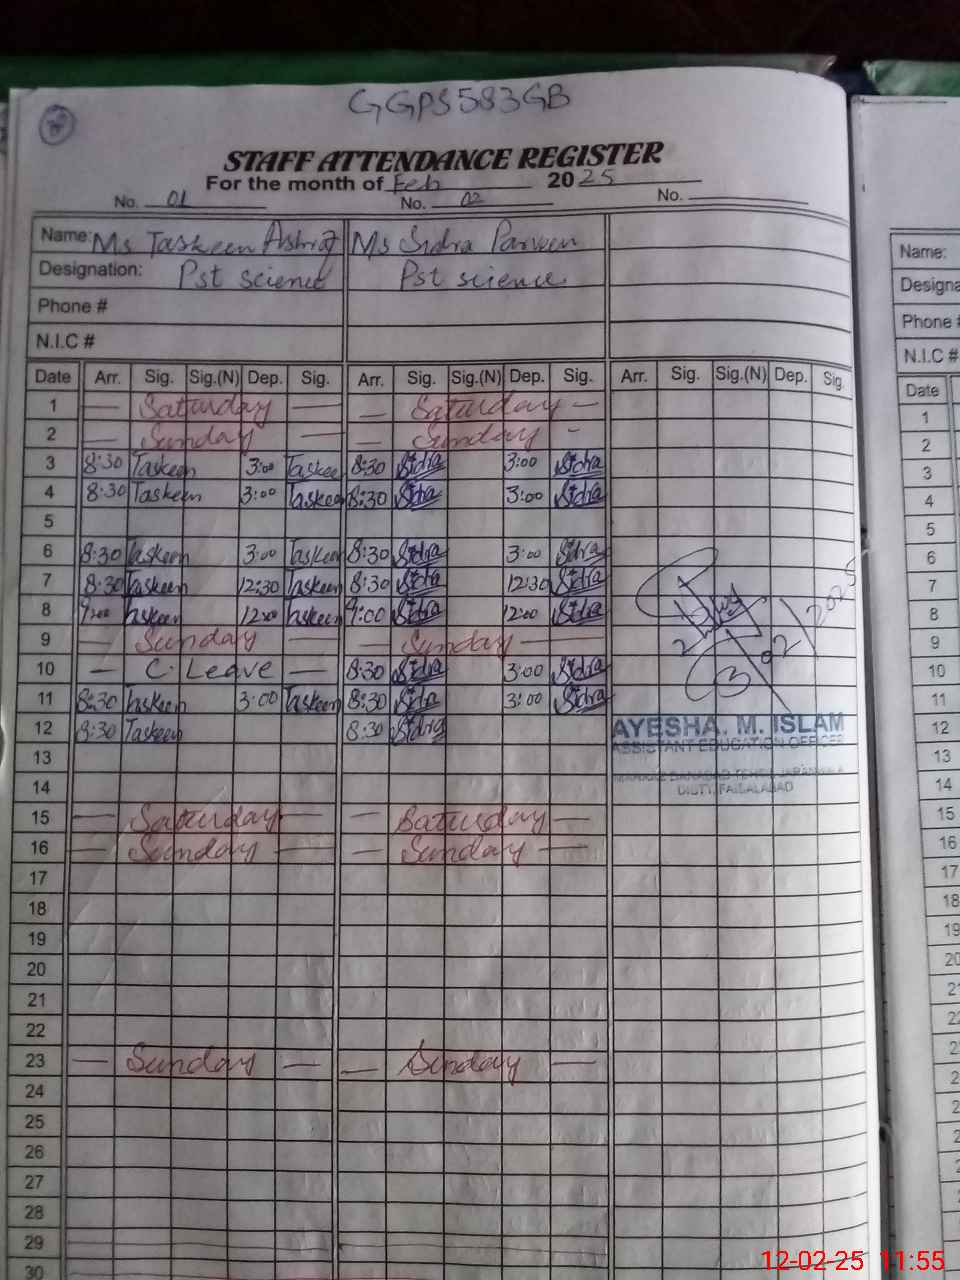 GGPS 583GB
STAFF ATTENDANCE REGISTER
For the month of Feb 2025
No. 01 No. 02 No.
Name: Ms Taskeen Ashraf Ms Sidra Parveen
Designation: Pst science Pst science
Phone #
N.I.C #
Date Arr. Sig. Sig.(N) Dep. Sig. Arr. Sig. Sig.(N) Dep. Sig. Arr. Sig. Sig.(N) Dep. Sig.
1 — Saturday — — Saturday —
2 — Sunday — — Sunday -
3 8:30 Taskeen 3:00 Taskeen 8:30 Sidra 3:00 Sidra
4 8:30 Taskeen 3:00 Taskeen 8:30 Sidra 3:00 Sidra
5
6 8:30 Taskeen 3:00 Taskeen 8:30 Sidra 3:00 Sidra
7 8:30 Taskeen 12:30 Taskeen 8:30 Sidra 12:30 Sidra
8 9:00 Taskeen 12:00 Taskeen 9:00 Sidra 12:00 Sidra
9 — Sunday — — Sunday —
10 — C. Leave — 8:30 Sidra 3:00 Sidra
11 8:30 Taskeen 3:00 Taskeen 8:30 Sidra 3:00 Sidra
12 8:30 Taskeen 8:30 Sidra
AYESHA. M. ISLAM
ASSISTANT EDUCATION OFFICER
DISTT. FAISALABAD
13
14
15 — Saturday — — Saturday —
16 — Sunday — — Sunday —
17
18
19
20
21
22
23 — Sunday — — Sunday —
24
25
26
27
28
29
30
Name:
Designa
Phone #
N.I.C #
Date
1
2
3
4
5
6
7
8
9
10
11
12
13
14
15
16
17
18
19
20
12-02-25 11:55